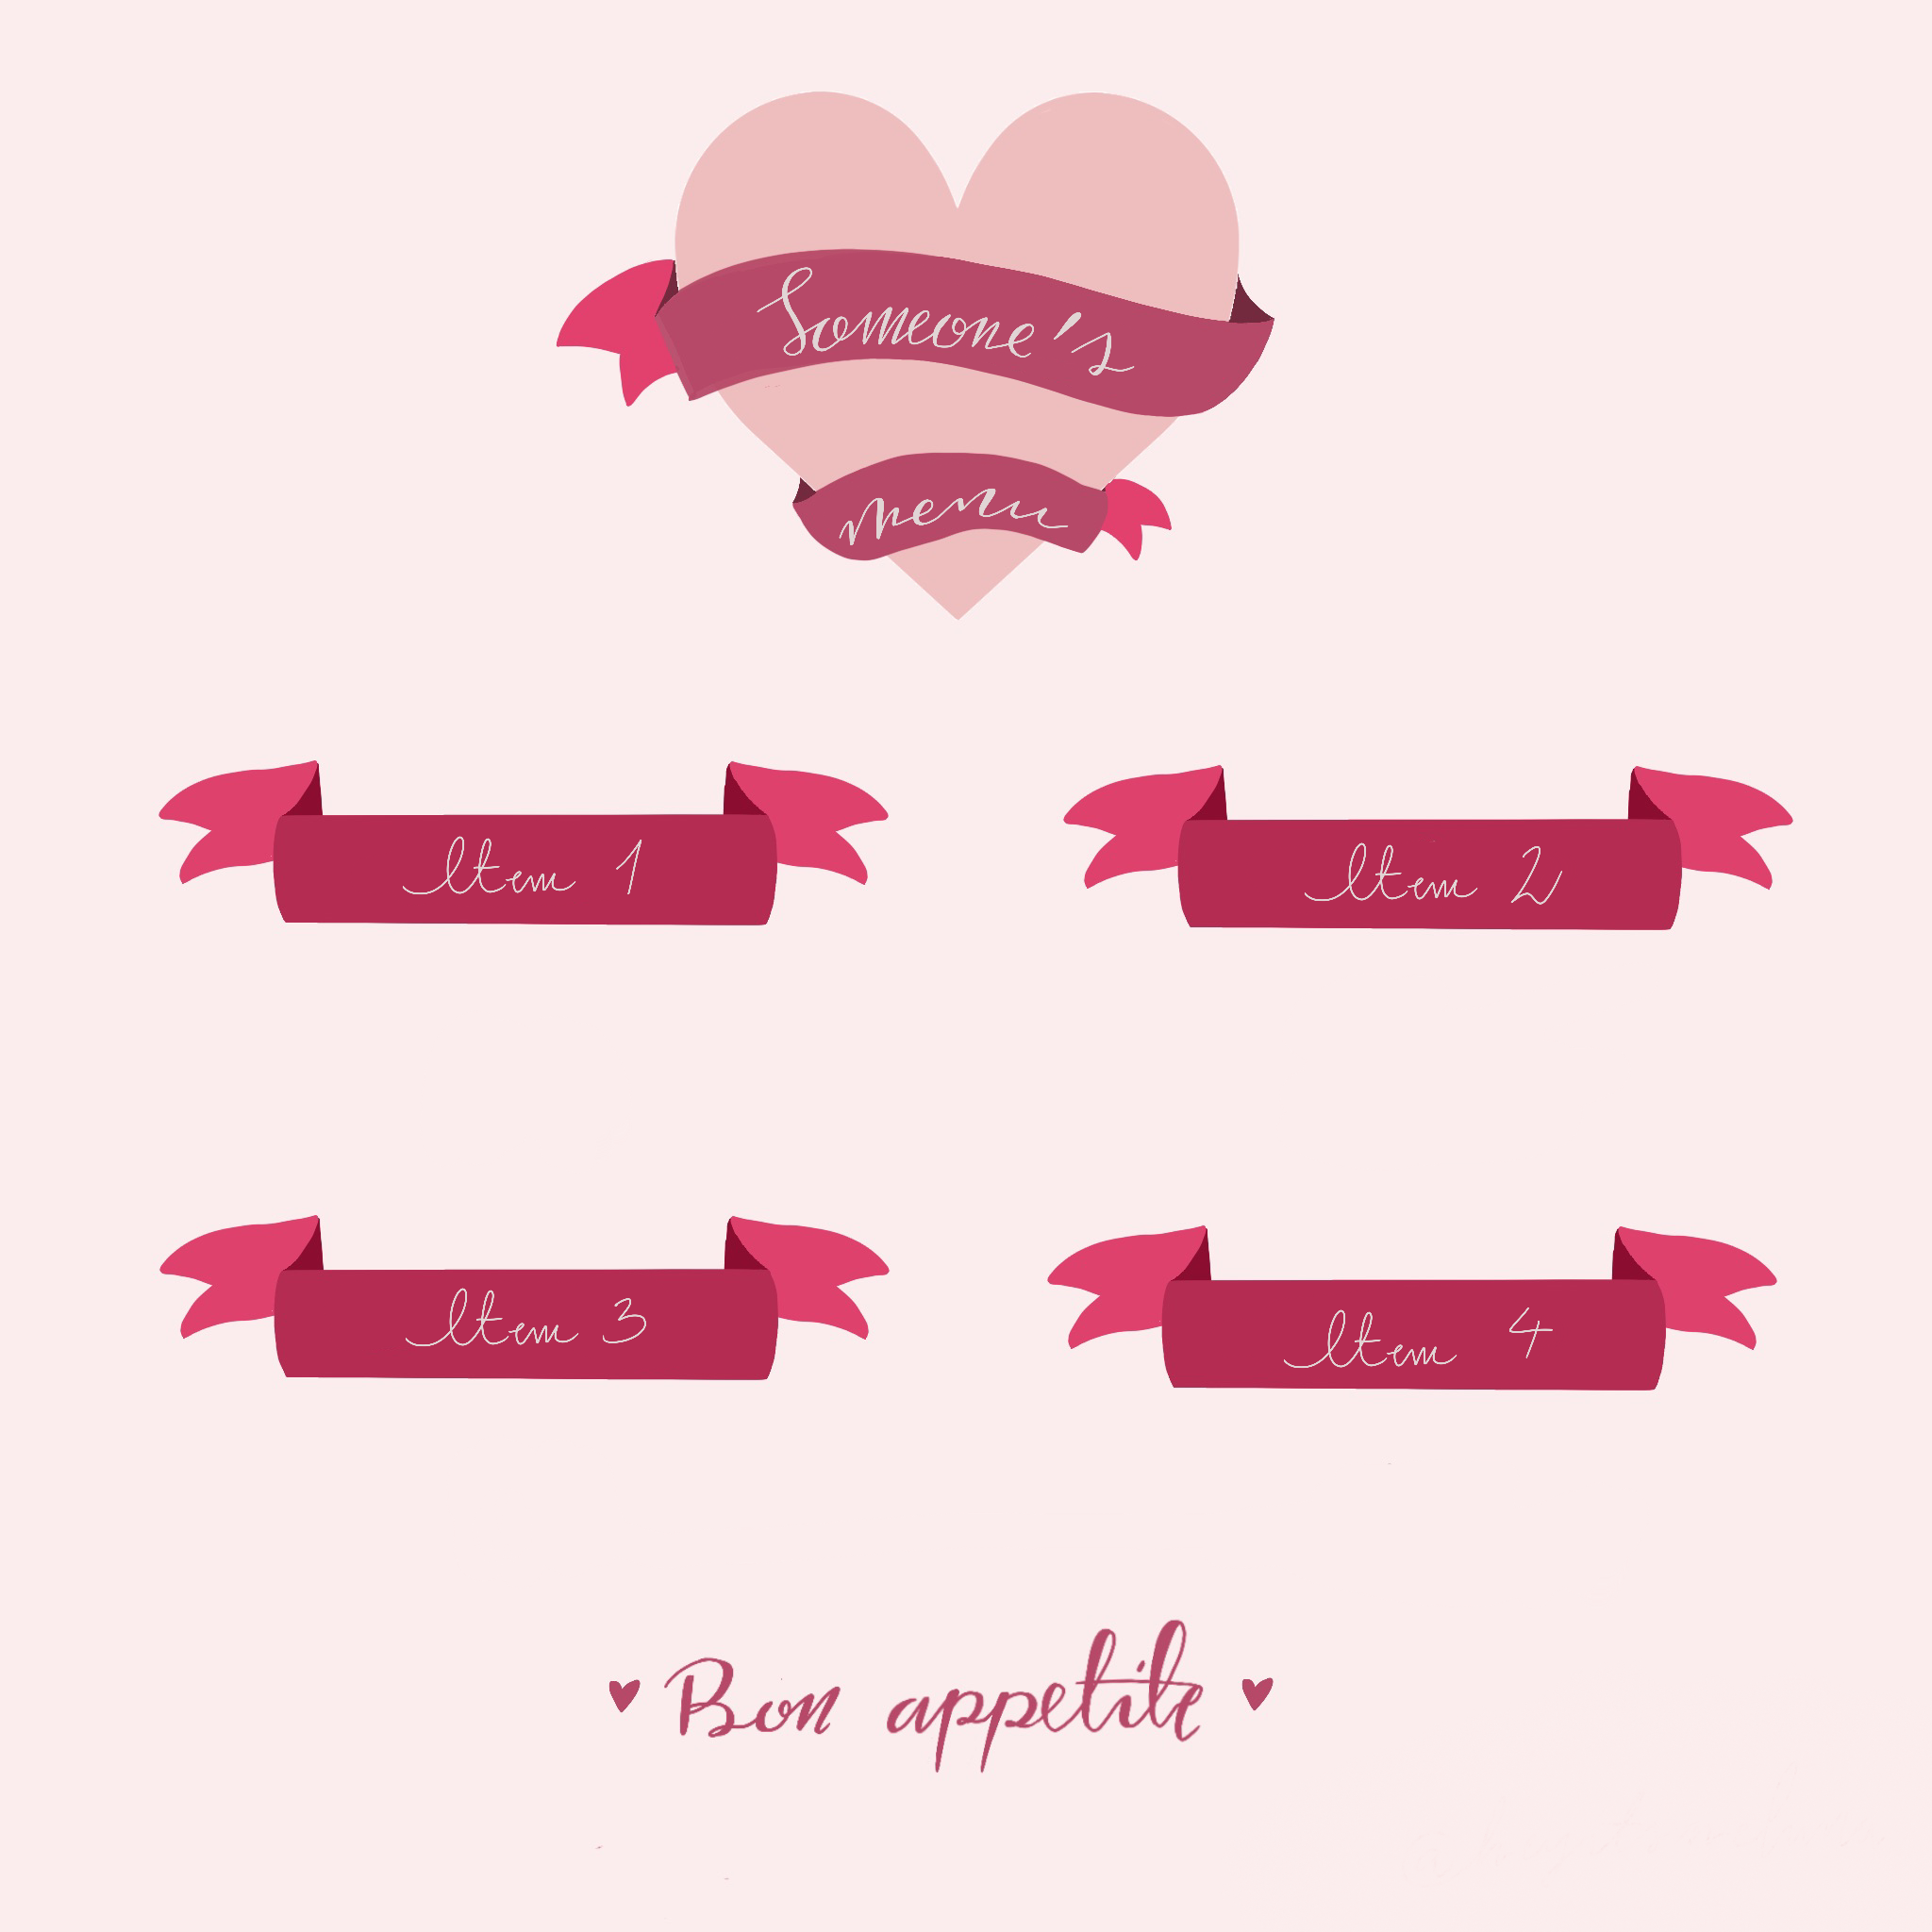 Someone's
Menu
Item 1
Item 2
Item 3
Item 4
Bon appetite